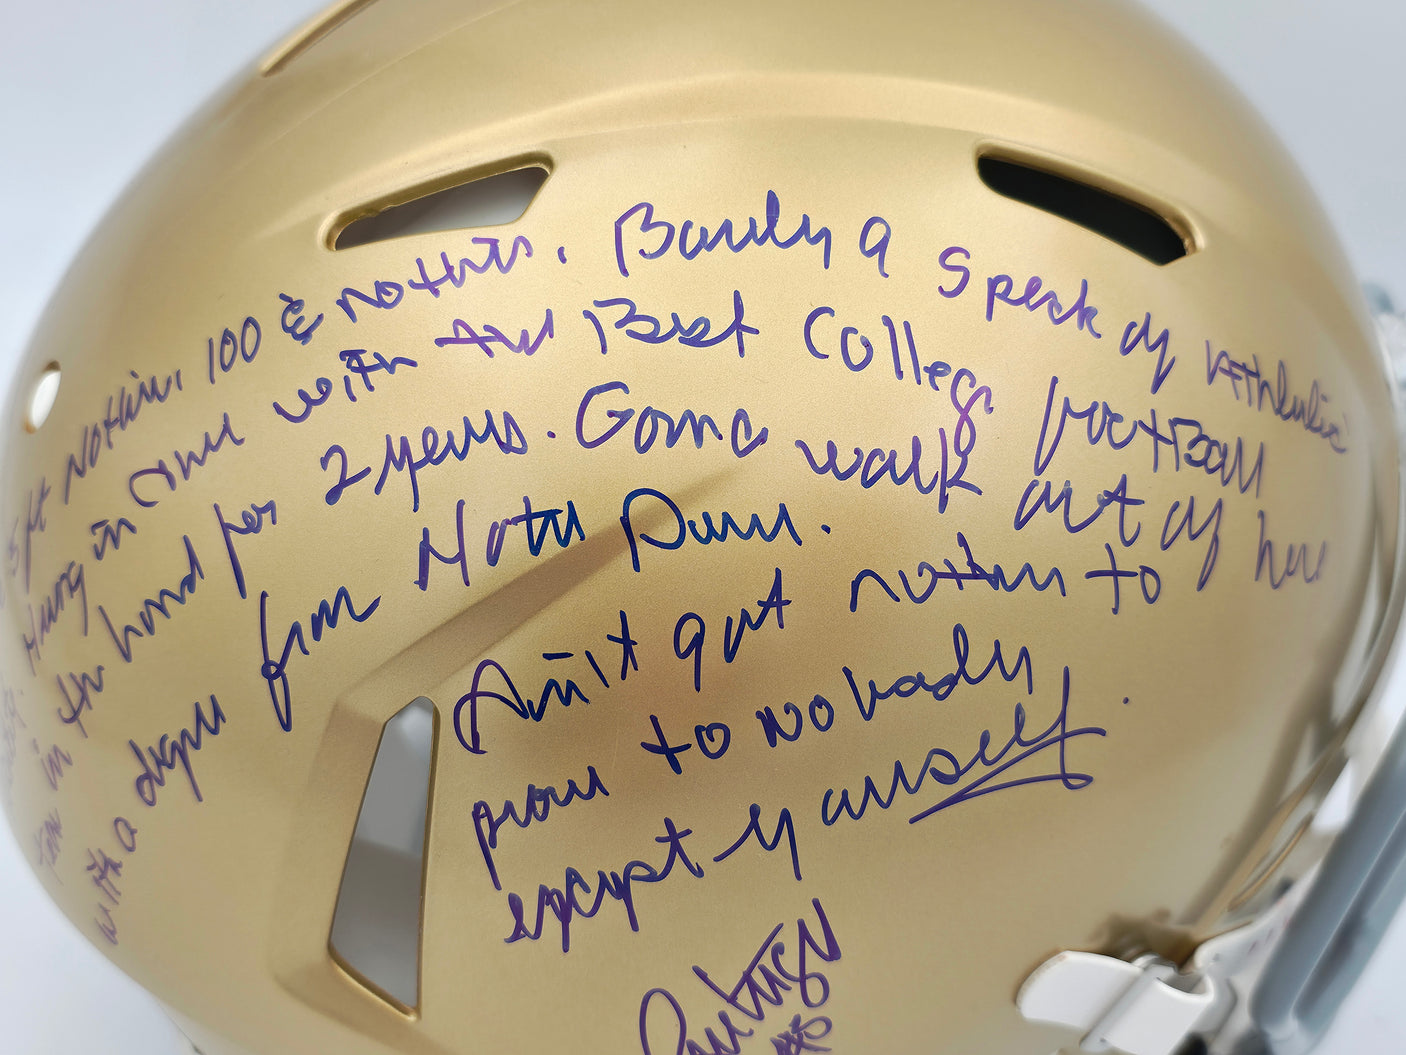 5 ft Nothin, 100 & nothin. Barely a Speck of Athletic
Hung in there with the Best College football
team in the land for 2 years. Gonna walk out of here
with a degree from Notre Dame.
Ain't got nothin to
prove to Nobody
except yourself.